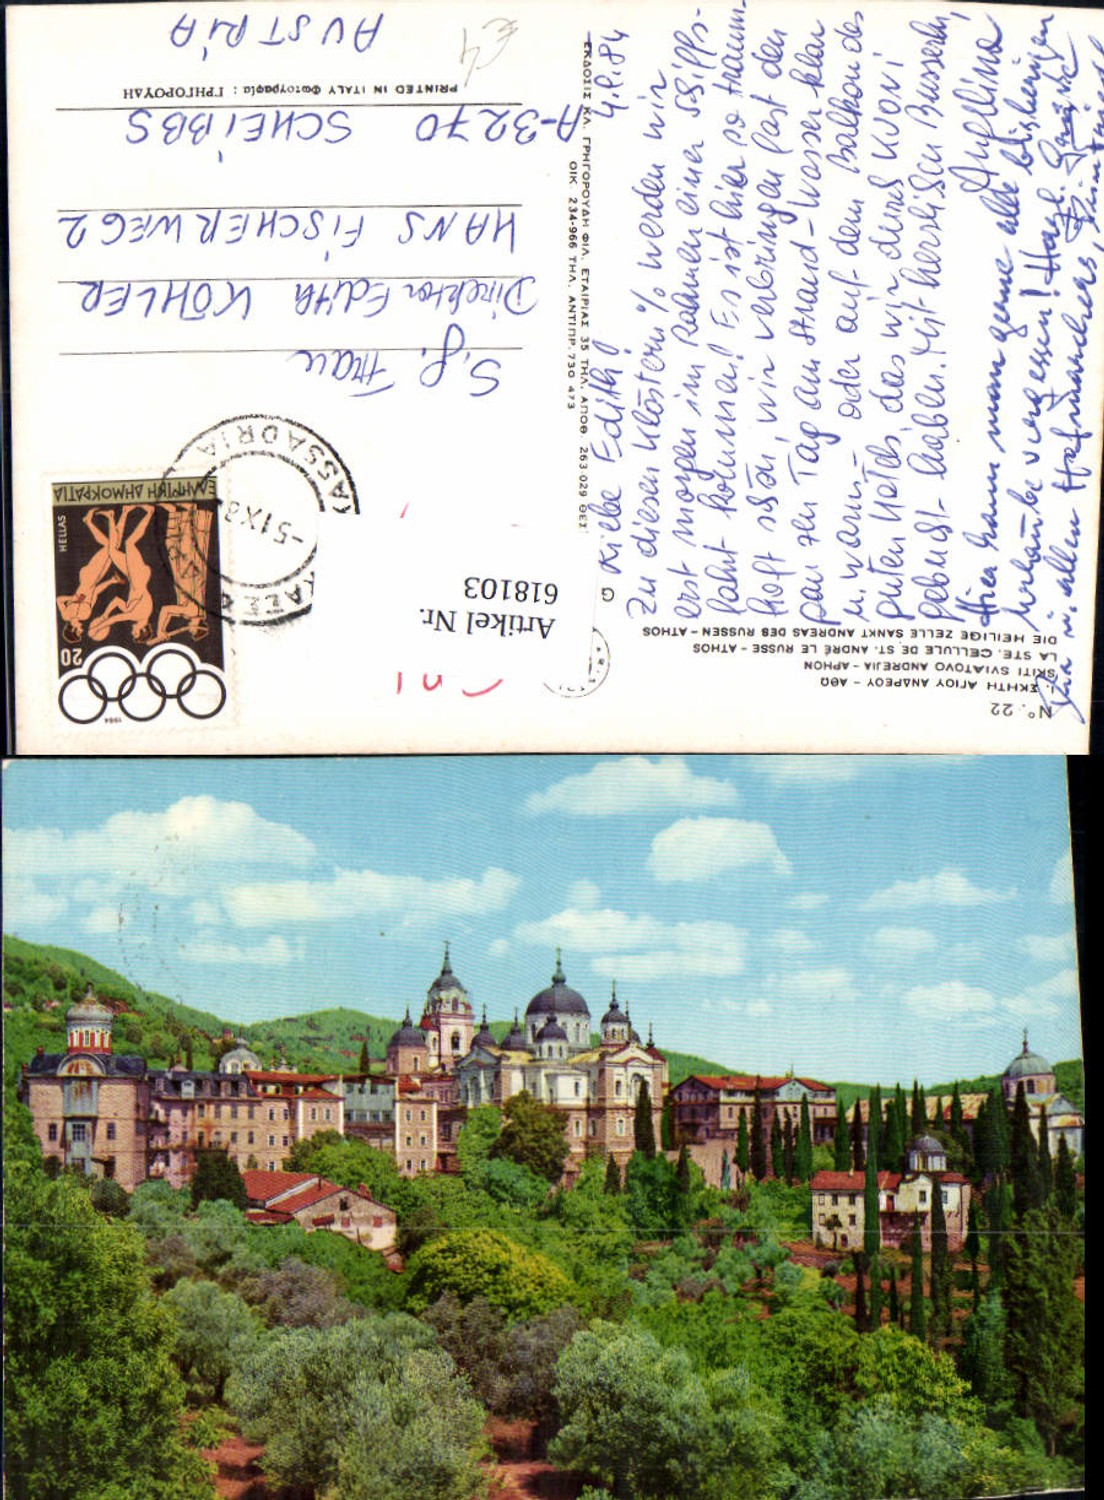 Nº. 22
Ι. ΣΚΗΤΗ ΑΓΙΟΥ ΑΝΔΡΕΟΥ - ΑΘΩ
SKITI SVIATOVO ANDREJIA - APHON
LA STE. CELLULE DE ST. ANDRÉ LE RUSSE - ATHOS
DIE HEILIGE ZELLE SANKT ANDREAS DES RUSSEN - ATHOS
4.9.84
Liebe Edith!
Zu diesen Klöstern % werden wir
erst morgen im Rahmen einer Schiffs-
fahrt kommen! Es ist hier so traum-
haft schön, wir verbringen fast den
ganzen Tag am Strand - Wasser klar
u. warm - oder auf dem Balkon des
guten Hotels, das wir durch
gebucht haben. Mit herzlichen Busserln,
Hier kann man gerne alle bisherigen
vergessen! Herzl. Grüsse
an allen
ΕΚΔΟΣΙΣ ΚΛ. ΓΡΗΓΟΡΟΥΔΗ ΦΙΛ. ΕΤΑΙΡΙΑΣ 35 ΤΗΛ. ΑΠΟΘ. 263 029 ΘΕΣ
ΟΙΚ. 234-966 ΤΗΛ. ΑΝΤΙΠΡ. 730 473
G
1984
20
HELLAS
ΕΛΛΗΝΙΚΗ ΔΗΜΟΚΡΑΤΙΑ
-5 IX 8
KASSADRIA
Artikel Nr.
618103
S. g. Frau
Direktor Edith KÖHLER
HANS FISCHERWEG 2
A-3270 SCHEIBBS
AUSTRIA
PRINTED IN ITALY Φωτογραφία : ΓΡΗΓΟΡΟΥΔΗ
€4